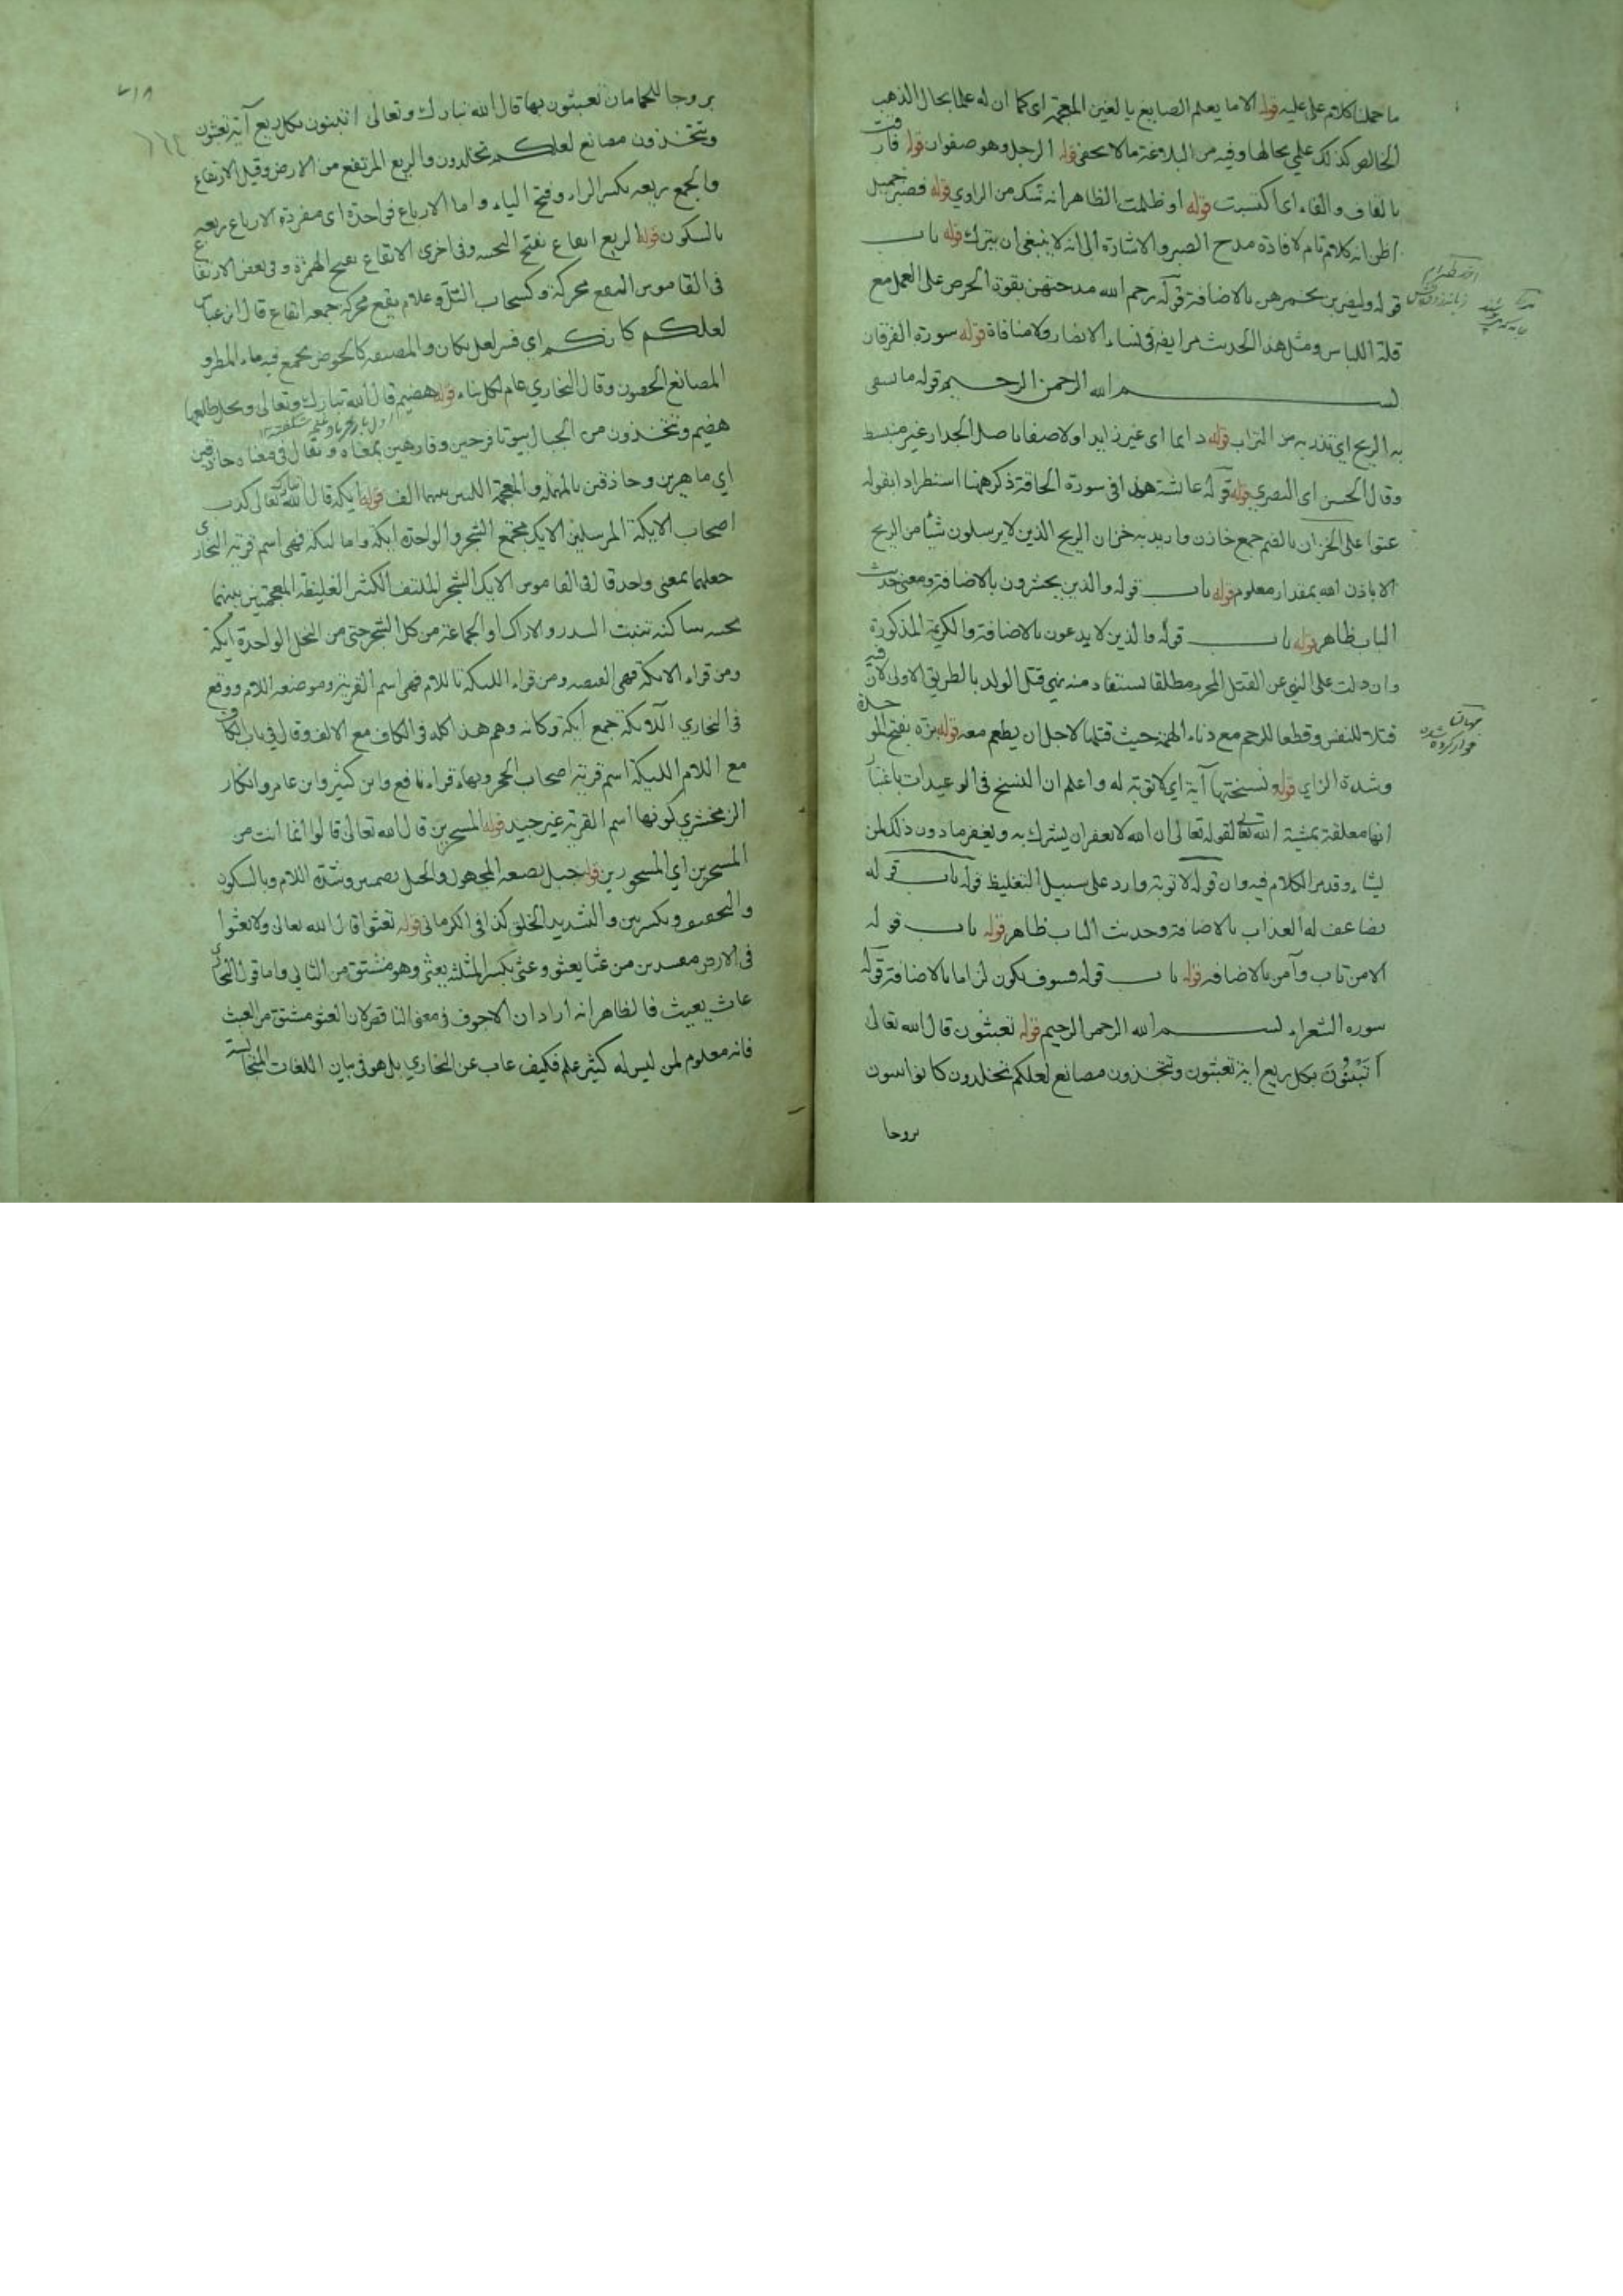 ما حملنا كلام على عليه قوله الا ما يعلم الصايغ بالغين المعجمة اى كما ان له علما بحال الذهب
الخالص كذلك علمي بحالها وفيه من البلاغة ما لا يخفى قوله الرجل وهو صفوان قوله قارفت
بالقاف والفاء اى اكتسبت قوله او ظلمت الظاهر انه شك من الراوي قوله فصبر جميل
اظن انه كلام تام لافادة مدح الصبر والاشارة الى انه لا ينبغي ان يترك قوله باب
قوله وليضربن بخمرهن بالاضافة قوله رحم الله مدحتهن بقوة الحرص على العمل مع
قلة اللباس ومثل هذا الحديث مر ايضا في نساء الانصار ولا منافاة قوله سورة الفرقان
بسم الله الرحمن الرحيم قوله ما تسفى
به الريح اى تذر به من التراب قوله دايما اى غير زايد اولا صفا باصل الجدار غير منبسط
وقال الحسن اى البصري قوله قوله عائشة هذا في سورة الحاقة ذكر ههنا استطرادا بقوله
عتوا على الخزان بالضم جمع خازن واريد به خزان الريح الذين لا يرسلون شيأ من الريح
الا باذن الله بمقدار معلوم قوله باب قوله والذين يحشرون بالاضافة ومعنى حديث
الباب ظاهر قوله باب قوله والذين لا يدعون بالاضافة والكريمة المذكورة
وان دلت على النهي عن القتل المحرم مطلقا يستفاد منه نهي قتل الولد بالطريق الاولى لان فيه
قتلا للنفس وقطعا للرحم مع دناءة الهمة حيث قتلها لاجل ان يطعم معه قوله بزة بفتح الموحدة
وشدة الزاي قوله نسختها آية اى لا توبة له واعلم ان النسخ في الوعيدات باعتبار
انها معلقة بمشية الله تعالى لقوله تعالى ان الله لا يغفر ان يشرك به ويغفر ما دون ذلك لمن
يشاء وقد مر الكلام فيه وان قوله لا توبة وارد على سبيل التغليظ قوله باب قوله
يضاعف له العذاب بالاضافة وحديث الباب ظاهر قوله باب قوله
الا من تاب وآمن بالاضافة قوله باب قوله فسوف يكون لزاما بالاضافة قوله
سورة الشعراء بسم الله الرحمن الرحيم قوله تعبثون قال الله تعالى
أتبنون بكل ريع اية تعبثون وتتخذون مصانع لعلكم تخلدون كانوا يبنون
بروجا
بروجا للحمامات تعبثون بها قال الله تبارك وتعالى اتبنون بكل ريع آية تعبثون
وتتخذون مصانع لعلكم تخلدون والريع المرتفع من الارض وقيل الارتفاع
والجمع ريعه بكسر الراء وفتح الياء واما الارباع في احدة اى مفردة الارباع ريعه
بالسكون قوله الريع ايفاع بفتح التحتية وفي اخرى الايفاع بفتح الهمزة وفي بعض الارتفاع
في القاموس اليفع محركة وكسحاب التل وغلام يفع محركة جمعه ايفاع قال ابن عباس
لعلكم كانكم اي فسر لعل بكان والمصنعه كالحوض يجمع فيه ماء المطر و
المصانع الحصون وقال البخاري عام لكل بناء قوله هضيم قال الله تبارك وتعالى ونخل طلعها
هضيم وتتخذون من الجبال بيوتا فرحين وفارهين بمعناه ويقال في معناه حاذقين
اي ماهرين وحاذقين بالمهملة والمعجمة اللتين بينهما الف قوله ايكة قال الله تبارك تعالى كذب
اصحاب الايكة المرسلين الايك مجتمع الشجر والواحدة ايكة واما ليكة فهي اسم قرية البخاري
جعلهما بمعنى واحد قال في القاموس الايك الشجر الملتف الكثير الغليظة المعجمتين بينهما
تحتيه ساكنة تنبت السدر والاراك او الجماعة من كل الشجر حتى من النخل الواحدة ايكة
ومن قراء الايكة فهي الغيضه ومن قراء الليكة باللام فهي اسم القرية وموضعه اللام ووقع
في البخاري الآيكة جمع ايكة وكانه وهم هذا كله في الكاف مع الالف وقال في باب الكاف
مع اللام الليكة اسم قرية اصحاب الحجر وبهاء قراء نافع وابن كثير وابن عامر وانكار
الزمخشري كونها اسم القرية غير جيد قوله المسحرين قال الله تعالى قالوا انما انت من
المسحرين اي المسحورين قوله جبل بصيغه المجهول والجبل بضمتين وشدة اللام وبالسكون
والتخفيف وبكسرتين والتشديد الخلق كذا في الكرماني قوله تعثوا قال الله تعالى ولا تعثوا
في الارض مفسدين من عثا يعثو وعثى بكسر المثلثة يعثى وهو مشتق من الثاني واما قول البخاري
عاث يعيث فالظاهر انه اراد ان الاجوف في معنى الناقص لان العثو مشتق من العيث
فانه معلوم لمن ليس له كثير علم فكيف غاب عن البخاري بل هو في بيان اللغات المتجانسة